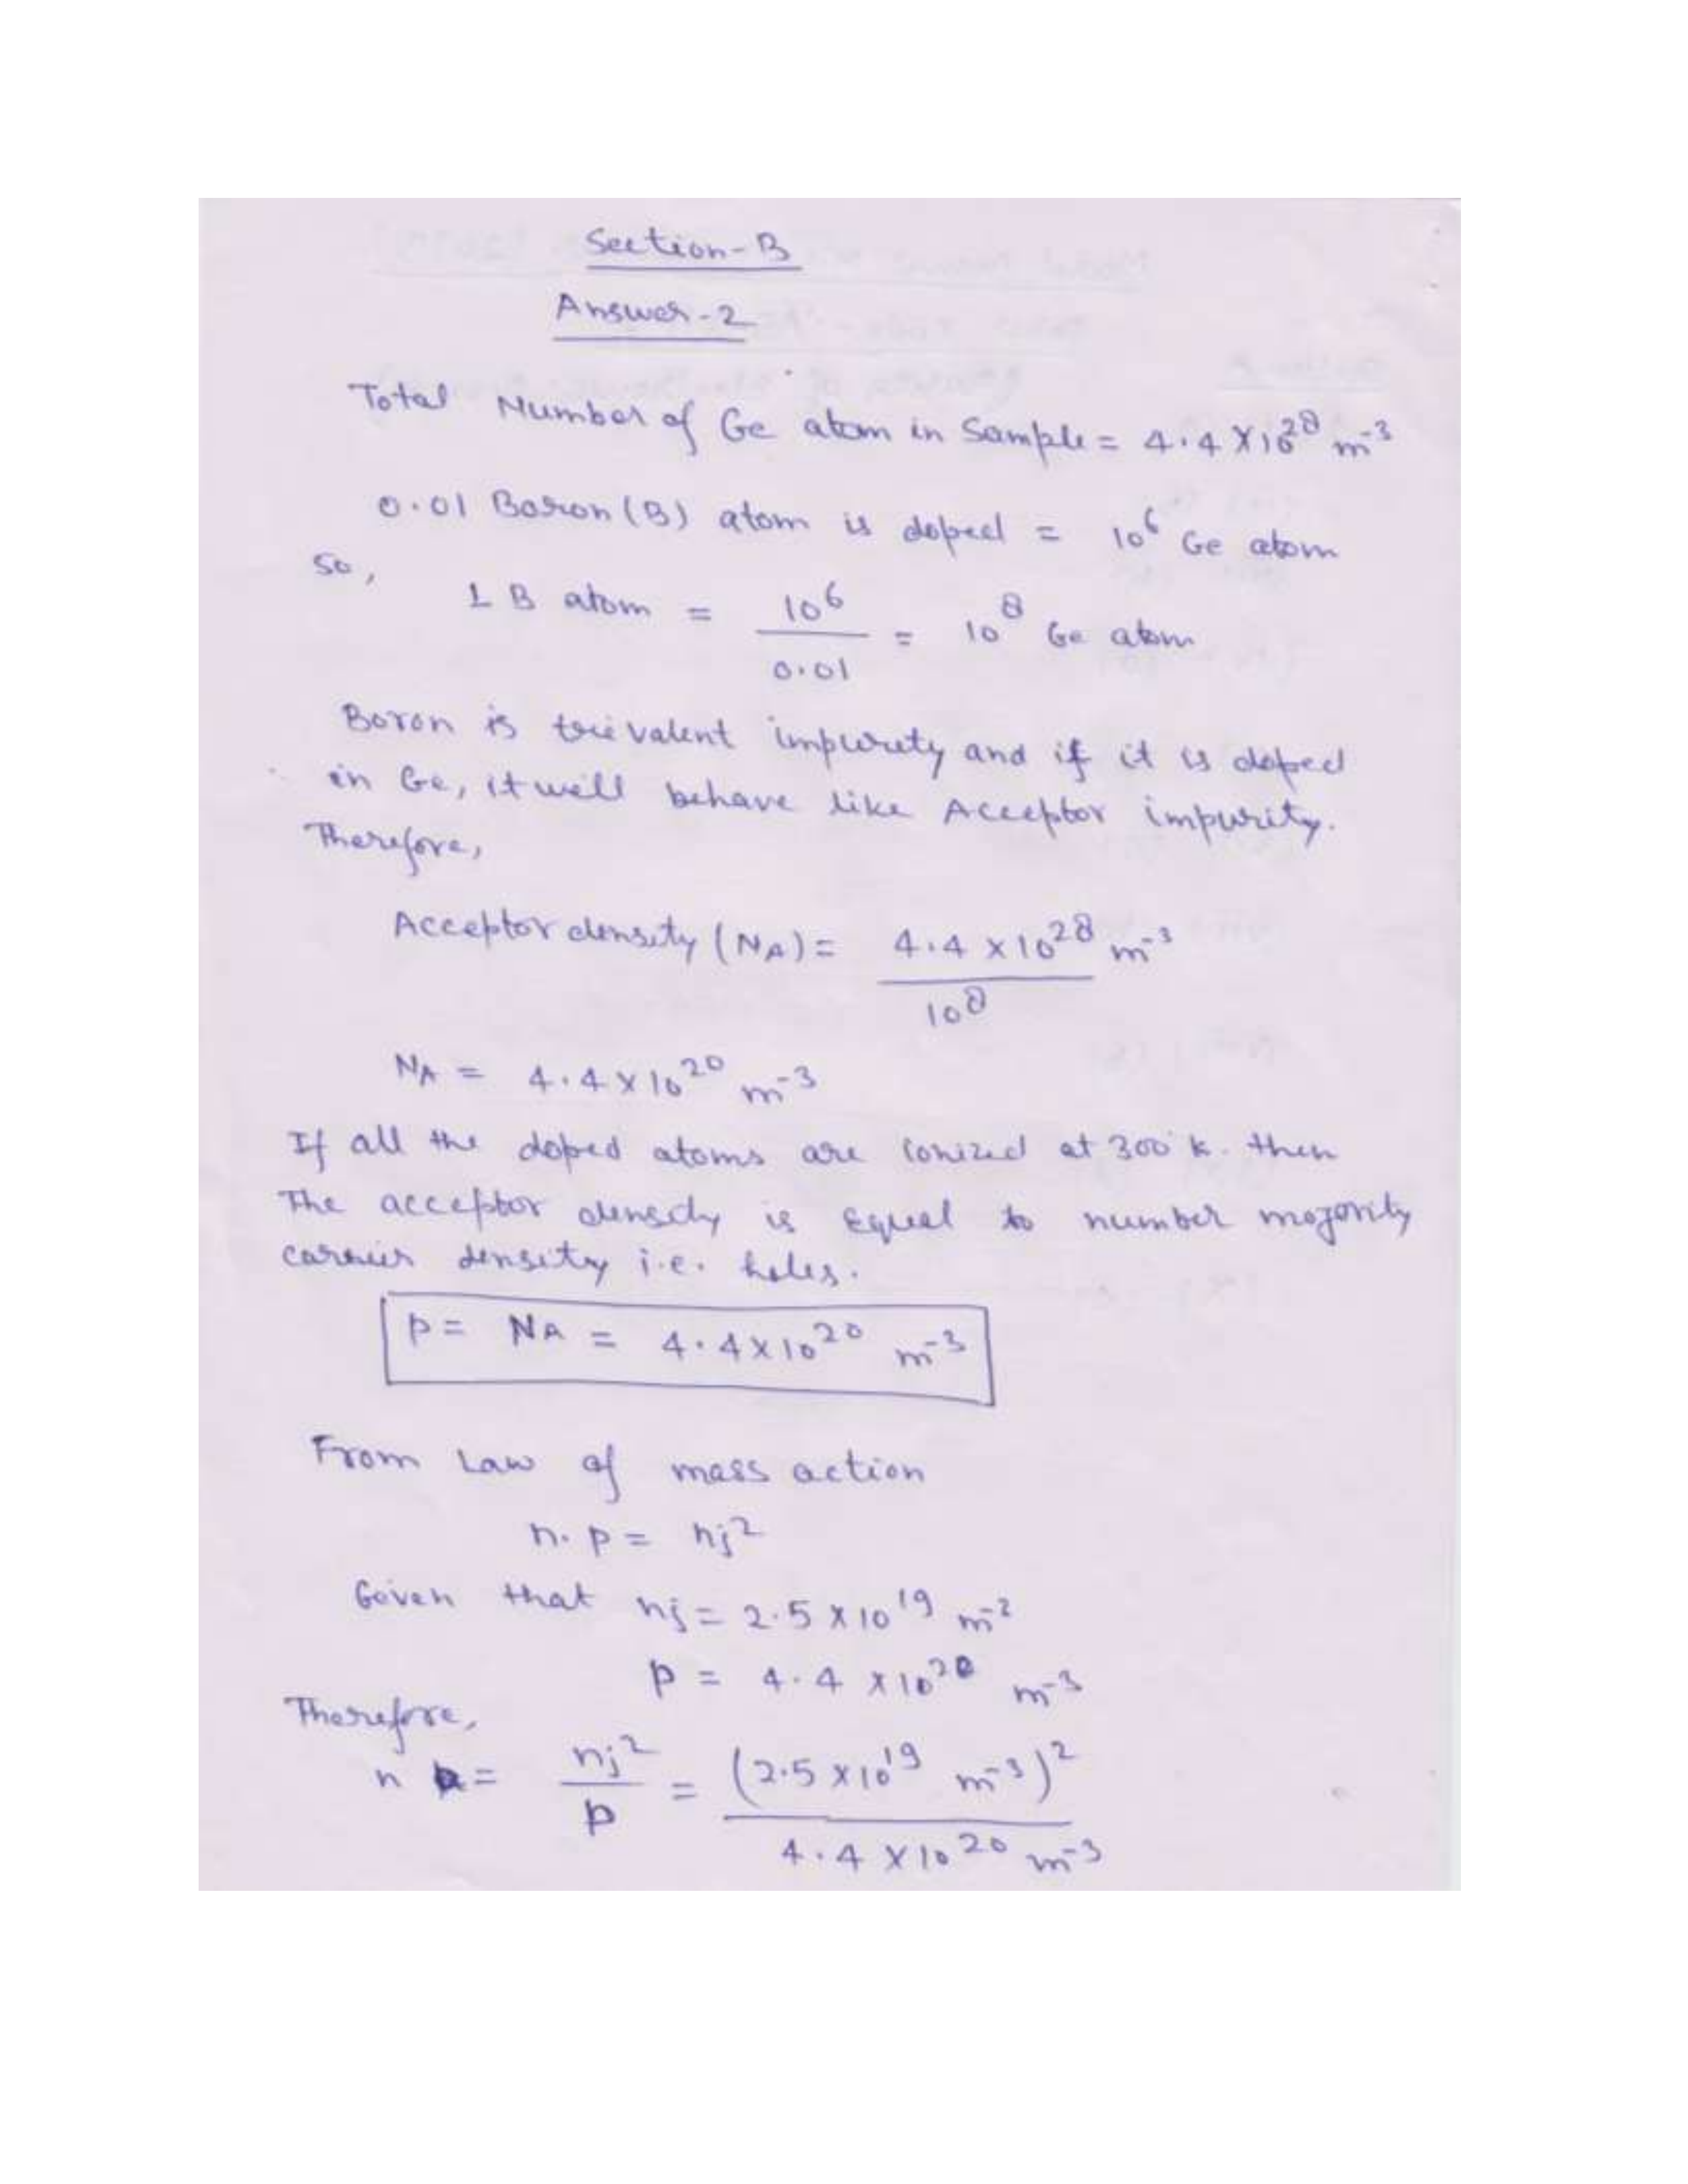 Section-B
Answer-2
Total Number of Ge atom in Sample = 4.4 X10^28 m^-3
0.01 Boron (B) atom is doped = 10^6 Ge atom
so,
1 B atom = 10^6 / 0.01 = 10^8 Ge atom
Boron is trivalent impurity and if it is doped
in Ge, it will behave like Acceptor impurity.
Therefore,
Acceptor density (NA) = 4.4 x 10^28 m^-3 / 10^8
NA = 4.4 X 10^20 m^-3
If all the doped atoms are ionized at 300 k. then
The acceptor density is equal to number majority
carrier density i.e. holes.
p = NA = 4.4 x 10^20 m^-3
From Law of mass action
n. p = nj^2
Given that nj = 2.5 x 10^19 m^-2
p = 4.4 x 10^20 m^-3
Therefore,
n = nj^2 / p = (2.5 x 10^19 m^-3)^2 / 4.4 X 10^20 m^-3